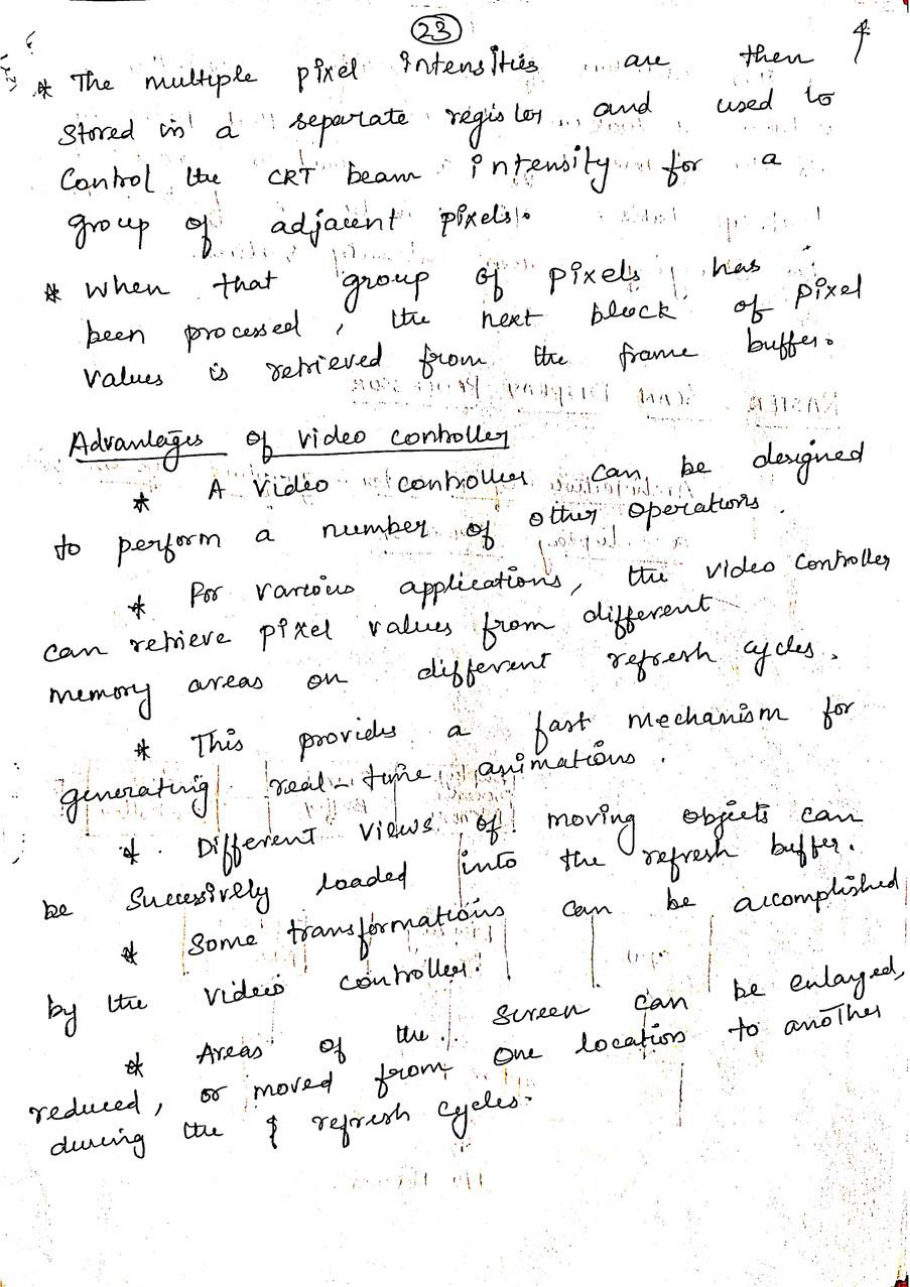 23
* The multiple pixel intensities are then
stored in a separate register and used to
Control the CRT beam intensity for a
group of adjacent pixels.
* When that group of pixels has
been processed, the next block of pixel
values is retrieved from the frame buffer.
Advantages of video controller
* A video controller can be designed
to perform a number of other operations.
* For various applications, the video controller
can retrieve pixel values from different
memory areas on different refresh cycles.
* This provides a fast mechanism for
generating real-time animations.
* Different views of moving objects can
be successively loaded into the refresh buffer.
* Some transformations can be accomplished
by the video controller.
* Areas of the screen can be enlarged,
reduced, or moved from one location to another
during the refresh cycles.